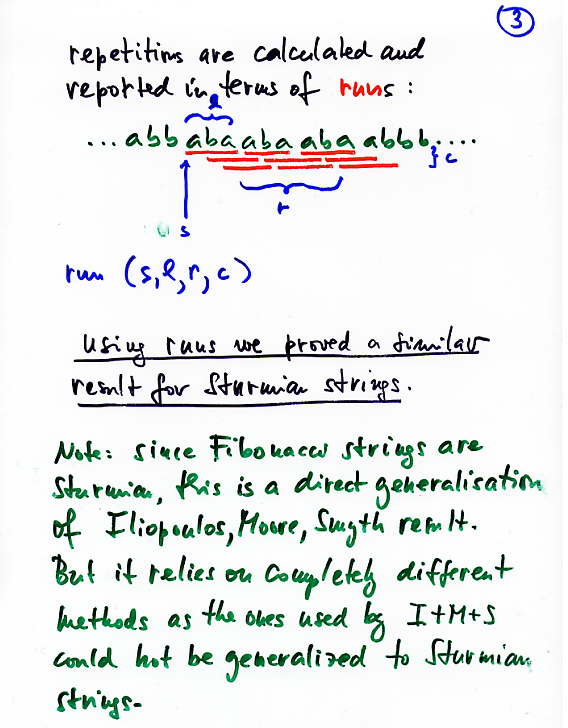 3
repetitions are calculated and
reported in terms of runs:
l
...abb aba aba aba abbb....
} c
r
s
run (s, l, r, c)
Using runs we proved a similar
result for Sturmian strings.
Note: since Fibonacci strings are
Sturmian, this is a direct generalisation
of Iliopoulos, Moore, Smyth result.
But it relies on completely different
methods as the ones used by I+M+S
could not be generalized to Sturmian
strings.